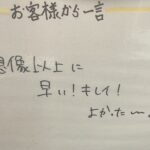 お客様から一言
想像以上に
早い!キレイ!
よかった〜。